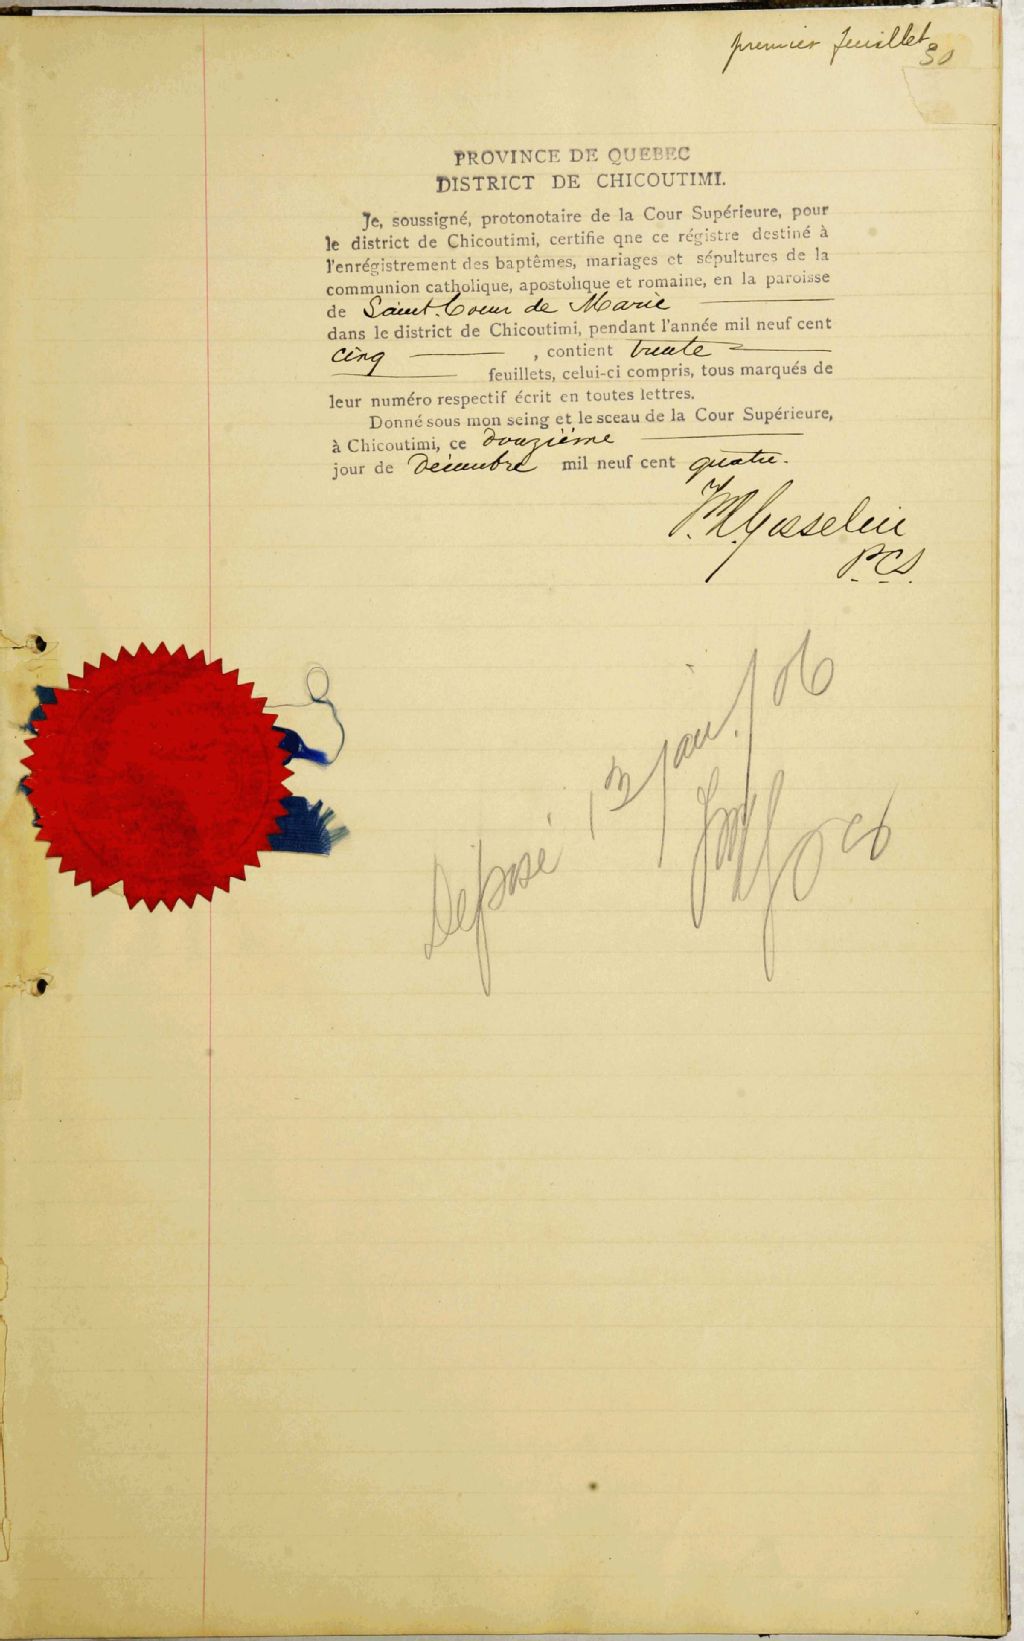 premier feuillet
30
PROVINCE DE QUEBEC
DISTRICT DE CHICOUTIMI.
Je, soussigné, protonotaire de la Cour Supérieure, pour
le district de Chicoutimi, certifie qne ce régistre destiné à
l'enrégistrement des baptêmes, mariages et sépultures de la
communion catholique, apostolique et romaine, en la paroisse
de Saint-Coeur de Marie
dans le district de Chicoutimi, pendant l'année mil neuf cent
cinq , contient trente
feuillets, celui-ci compris, tous marqués de
leur numéro respectif écrit en toutes lettres.
Donné sous mon seing et le sceau de la Cour Supérieure,
à Chicoutimi, ce douzième
jour de décembre mil neuf cent quatre.
Gosselin
P.C.S.
Déposé 13 janv. / 06